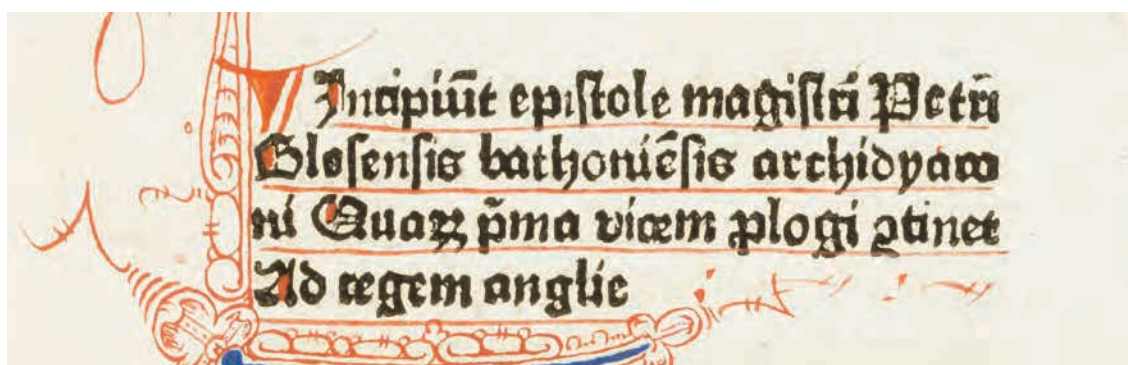 Incipiūt epistole magistri Petri
Blesensis bathoniēsis archidyaco
ni Quaꝝ p̄ma vicem ꝓlogi ꝯtinet
Ad regem anglie